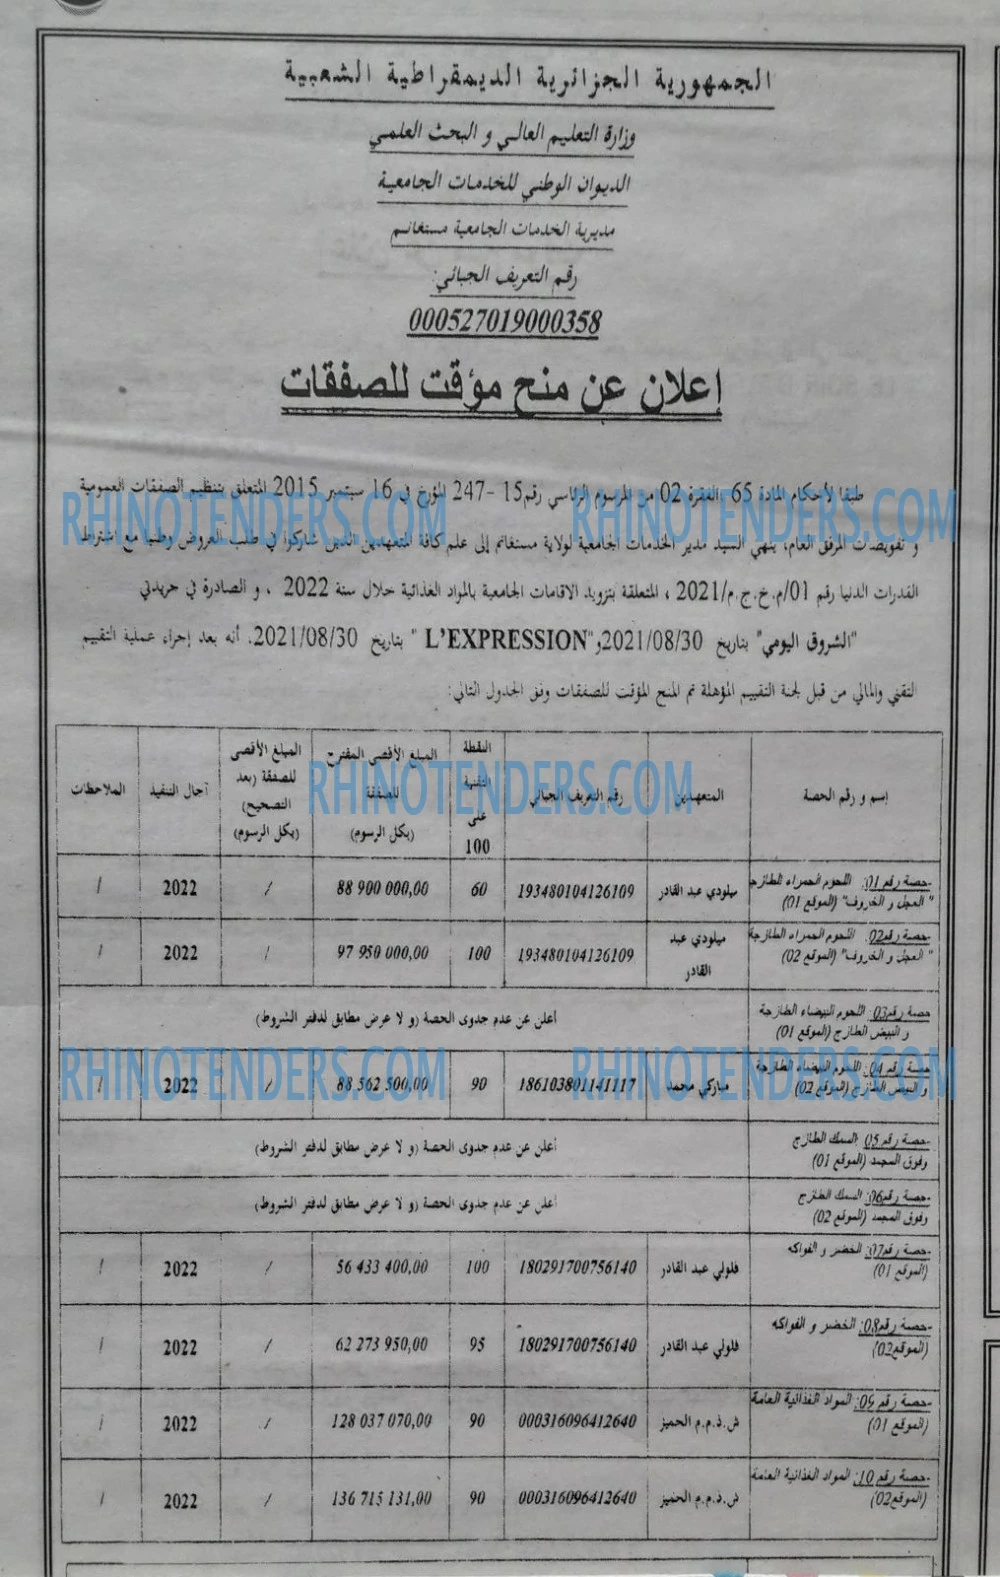 الجمهورية الجزائرية الديمقراطية الشعبية
وزارة التعليم العالي و البحث العلمي
الديوان الوطني للخدمات الجامعية
مديرية الخدمات الجامعية مستغانم
رقم التعريف الجبائي:
000527019000358
إعلان عن منح مؤقت للصفقات
طبقا لأحكام المادة 65 الفقرة 02 من المرسوم الرئاسي رقم 15-247 المؤرخ في 16 سبتمبر 2015 المتعلق بتنظيم الصفقات العمومية
و تفويضات المرفق العام، ينهي السيد مدير الخدمات الجامعية لولاية مستغانم إلى علم كافة المتعهدين الذين شاركوا في طلب العروض وطنيا مع اشتراط
القدرات الدنيا رقم 01/م.خ.ج.م/2021 ، المتعلقة بتزويد الاقامات الجامعية بالمواد الغذائية خلال سنة 2022 ، و الصادرة في جريدتي
"الشروق اليومي" بتاريخ 2021/08/30و"L'EXPRESSION " بتاريخ 2021/08/30. أنه بعد إجراء عملية التقييم
التقني والمالي من قبل لجنة التقييم المؤهلة تم المنح المؤقت للصفقات وفق الجدول التالي:
إسم و رقم الحصة | رقم التعريف الجبائي | المتعهدين | النقطة التقنية على 100 | المبلغ الأقصى المقترح للصفقة (بكل الرسوم) | المبلغ الأقصى للصفقة (بعد التصحيح) (بكل الرسوم) | آجال التنفيذ | الملاحظات
-حصة رقم 01: اللحوم الحمراء الطازجة "العجل و الخروف" (الموقع 01) | ميلودي عبد القادر | 193480104126109 | 60 | 88 900 000,00 | / | 2022 | /
-حصة رقم02: اللحوم الحمراء الطازجة "العجل و الخروف" (الموقع 02) | ميلودي عبد القادر | 193480104126109 | 100 | 97 950 000,00 | / | 2022 | /
حصة رقم03: اللحوم البيضاء الطازجة و البيض الطازج (الموقع 01) | أعلن عن عدم جدوى الحصة (و لا عرض مطابق لدفتر الشروط)
حصة رقم 04: اللحوم البيضاء الطازجة و البيض الطازج (الموقع 02) | مباركي محمد | 186103801141117 | 90 | 88 562 500,00 | / | 2022 | /
-حصة رقم 05: السمك الطازج وفوق المجمد (الموقع 01) | أعلن عن عدم جدوى الحصة (و لا عرض مطابق لدفتر الشروط)
-حصة رقم06: السمك الطازج وفوق المجمد (الموقع 02) | أعلن عن عدم جدوى الحصة (و لا عرض مطابق لدفتر الشروط)
-حصة رقم07: الخضر و الفواكه (الموقع 01) | فلولي عبد القادر | 180291700756140 | 100 | 56 433 400,00 | / | 2022 | /
-حصة رقم08: الخضر و الفواكه (الموقع02) | فلولي عبد القادر | 180291700756140 | 95 | 62 273 950,00 | / | 2022 | /
-حصة رقم 09: المواد الغذائية العامة (الموقع 01) | ش.ذ.م.م الحميز | 000316096412640 | 90 | 128 037 070,00 | / | 2022 | /
-حصة رقم 10: المواد الغذائية العامة (الموقع02) | ش.ذ.م.م الحميز | 000316096412640 | 90 | 136 715 131,00 | / | 2022 | /
RHINOTENDERS.COM
RHINOTENDERS.COM
RHINOTENDERS.COM
RHINOTENDERS.COM
RHINOTENDERS.COM